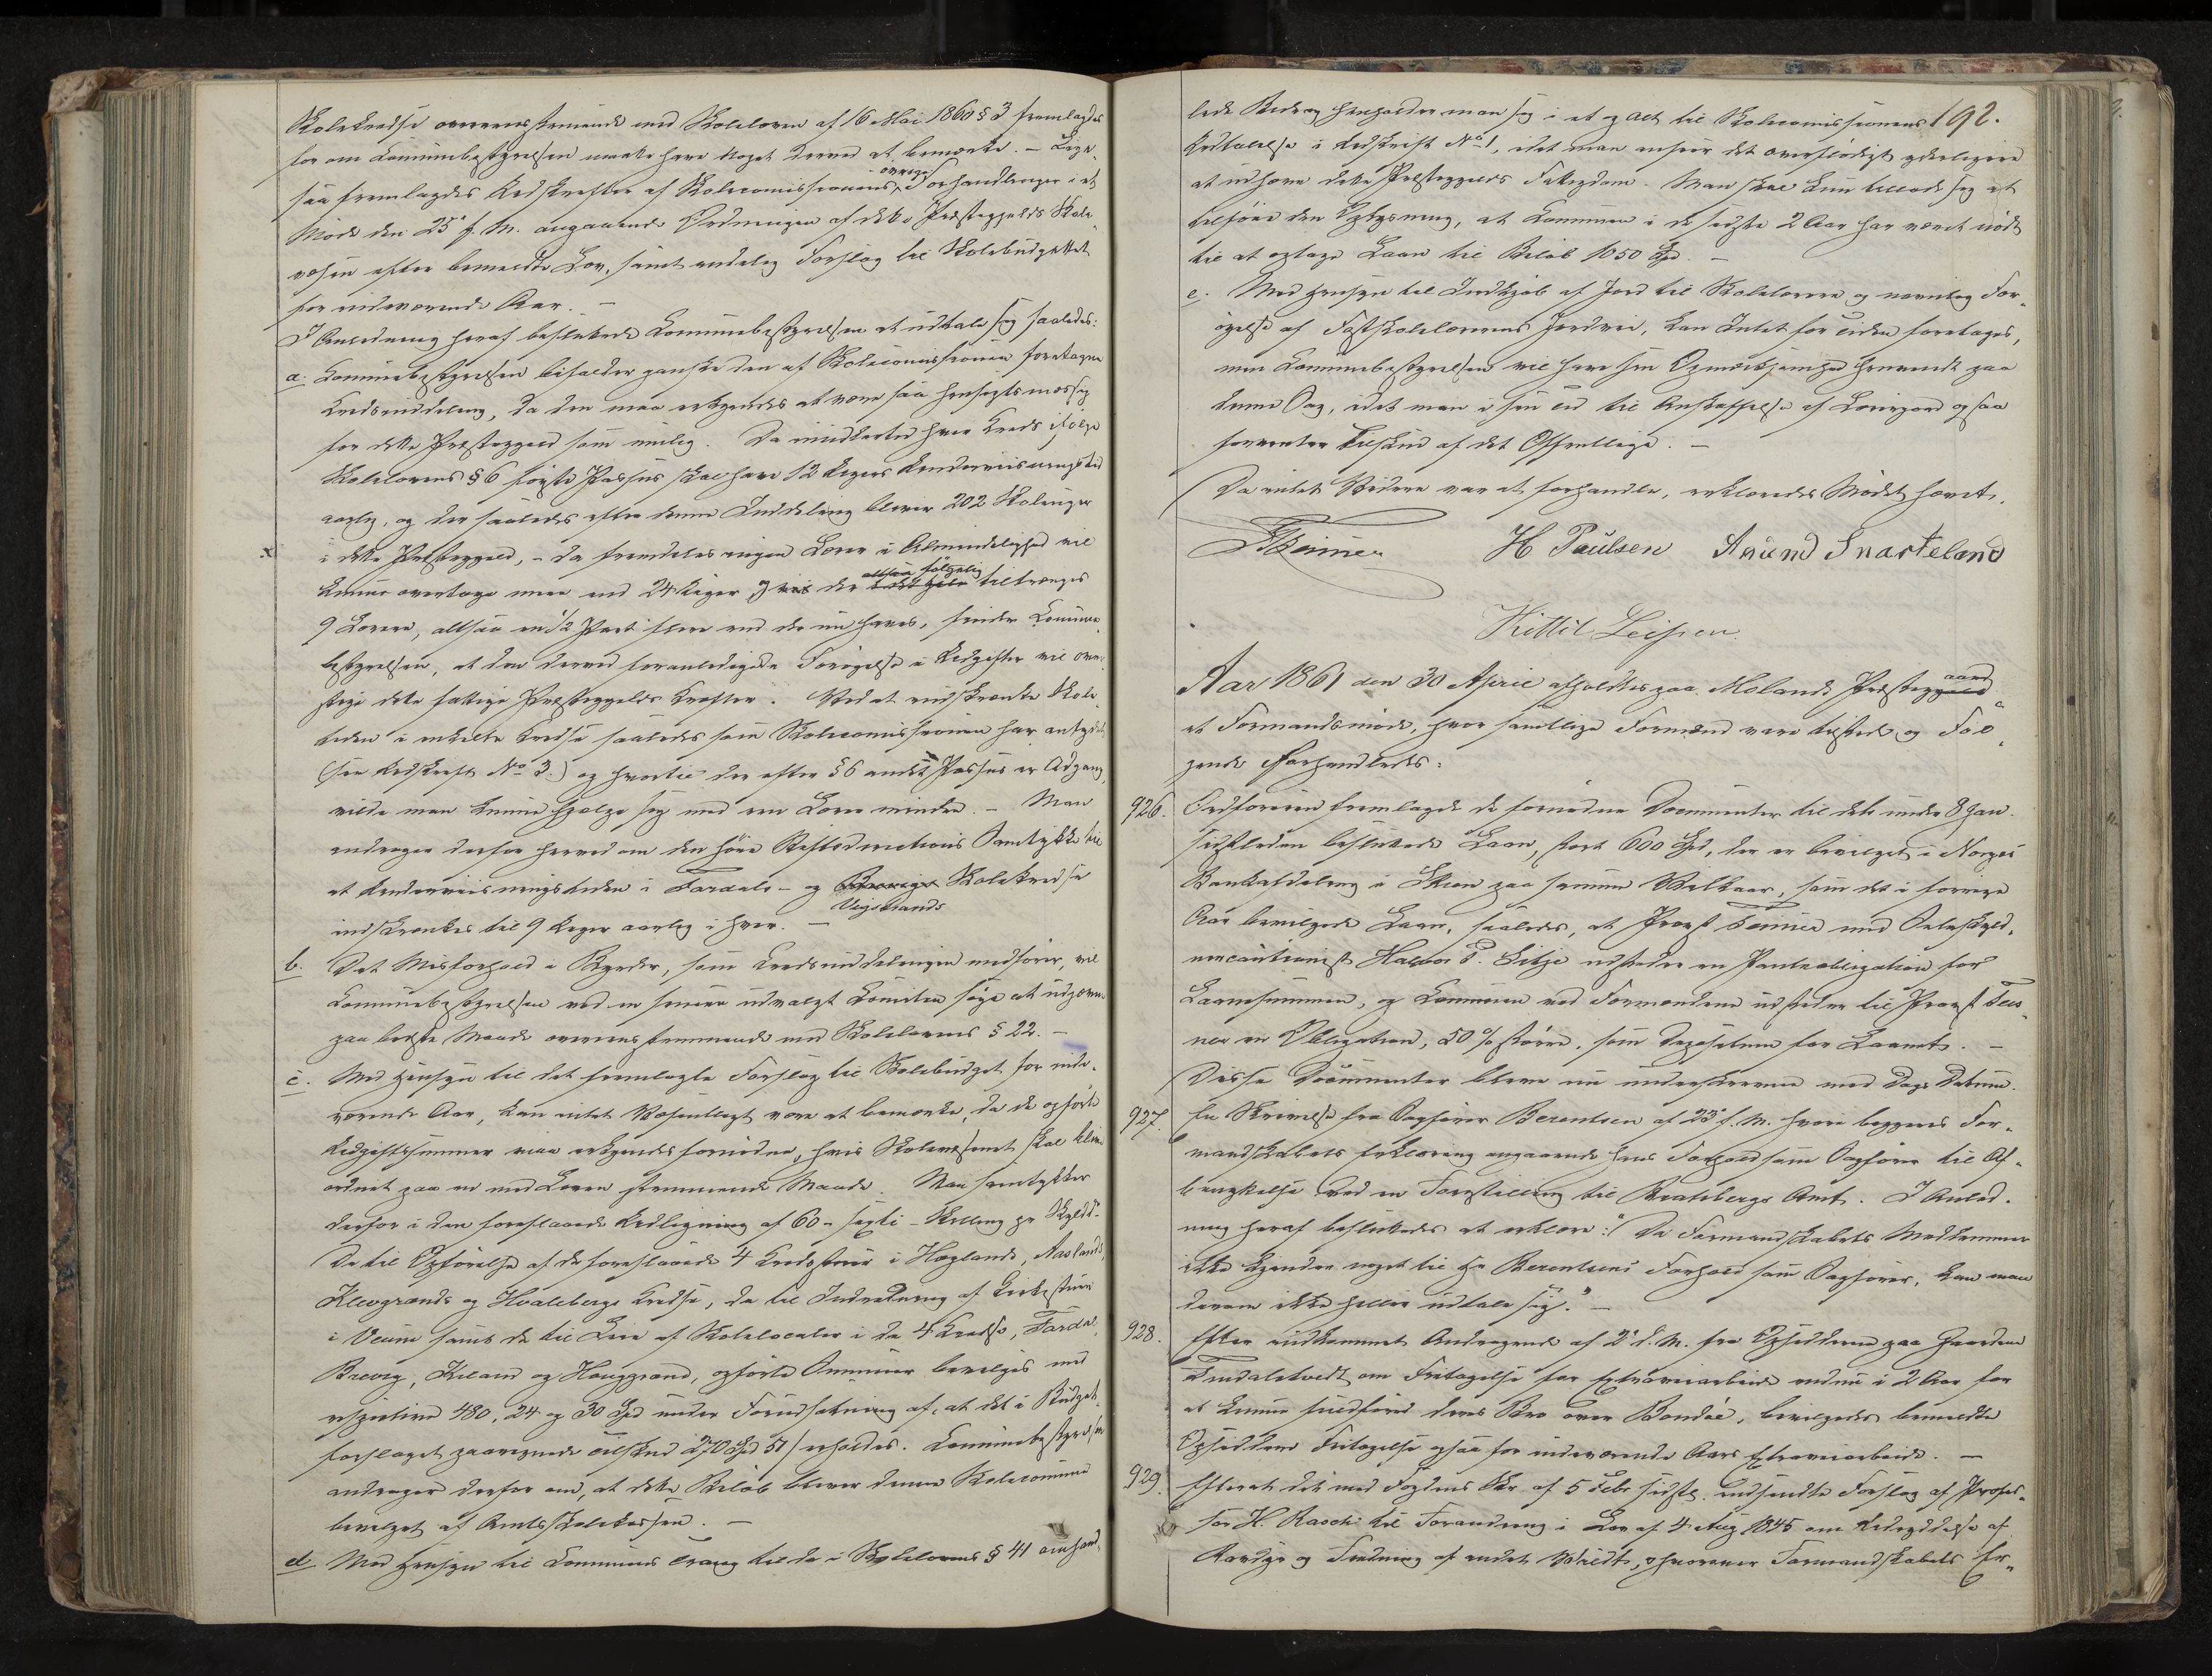 Skolekredse overensstemmende med Skoleloven af 16 Mai 1860 § 3 fremlagdes
for om Communebestyrelsen maatte have Noget derved at bemærke. – Lige-
saa fremlagdes Udskrifter af Skolecomissionens øvrige Forhandlinger i et
Møde den 25 f. M. angaaende Ordningen af dette Præstegjelds Skole-
væsen efter bemeldte Lov, samt endelig Forslag til Skolebudgettet
for indeværende Aar. –
I Anledning heraf besluttede Communebestyrelsen at udtale sig saaledes:
a. Communebestyrelsen bifalder ganske den af Skolecomissionen foretagne
Kredsinddeling, da den maa erkjendes at være saa hensigtsmæssig
for dette Præstegjeld som mulig. Da imidlertid hver Kreds ifølge
Skolelovens § 6 første Passus skal have 12 Ugers Underviisningstid
aarlig, og der saaledes efter denne Inddeling bliver 202 Skoleuger
i dette Præstegjeld, – da fremdeles ingen Lærer i Almindelighed vil
kunne overtage mere end 24 Uger, og der altsaa følgelig tiltrænges
9 Lærere, altsaa en ½ Part flere end der nu haves, finder Commune-
bestyrelsen, at den derved foranledigede Forøgelse i Udgifter vil over-
stige dette fattige Præstegjelds Kræfter. Ved at indskrænke Skole-
tiden i enkelte Kredse saaledes som Skolecomissionen har antydet
(see Udskrift No 3.) og hvortil der efter § 6 andet Passus er Adgang,
vilde man kunne hjælpe sig med een Lærer mindre. – Man
andrager derfor herved om den høie Stiftsdirections Samtykke til
at Underviisningstiden i Fardals- og Brevigs Skolekredse
Vigstrands
indskrænkes til 9 Uger aarlig i hver. –
b. Det Misforhold i Byrder, som Kredsinddelingen medfører, vil
Communebestyrelsen ved en senere udvalgt Comitee søge at udjævne
paa bedste Maade overensstemmende med Skolelovens § 22. –
c. Med Hensyn til det fremlagte Forslag til Skolebudget for inde-
værende Aar, kan intet Væsentligt være at bemærke, da de opførte
Udgiftssummer maa erkjendes fornødne, hvis Skolevæsenet skal blive
ordnet paa en med Loven stemmende Maade. Man samtykker
derfor i den foreslaaede Udligning af 60 – sexti – Skilling pr Skyldd.
Da til Opførelse af de foreslaaede 4 Kredsstuer i Høglands, Aaslands,
Klevgrends og Hvalebergs Kredse, da til Indredning af Kirkestuen
i Veum samt de til Leie af Skolelocaler i de 4 Kredse, Fardal,
Brevig, Kiland og Hauggrend, opførte Summer bevilges med
respective 480, 24 og 30 Spd under Forudsætning af, at det i Budget-
forslaget paaregnede Tilskud 270 Spd 51 s erholdes. Communebestyrelsen
andrager derfor om, at dette Beløb bliver denne Skolecommune
bevilget af Amtsskolekassen. –
d. Med Hensyn til Communens Trang til de i Skolelovens § 41 omhand-
192.
lede Bidrag henholder man sig i et og alt til Skolecomissionens
Udtalelse i Udskrift No 1, idet man anseer det overflødigt yderligere
at udhæve dette Præstegjelds Fattigdom. Man skal kun tillade sig at
tilføie den Oplysning, at Communen i de sidste 2 Aar har været nødt
til at optage Laan til Beløb 1050 Spd. –
e. Med Hensyn til Indkjøb af Jord til Skolelærere og navnlig For-
øgelse af Fastskolelærerens Jordvei, kan Intet for Tiden foretages,
men Communebestyrelsen vil have sin Opmærksomhed henvendt paa
denne Sag, idet man i sin Tid til Anskaffelse af Lærerjord ogsaa
forventer Tilskud af det Offentlige. –
Da intet Videre var at forhandle, erklæredes Mødet hævet.
H Paulsen Aniund Snarteland
Kittil Leifsen
Aar 1861 den 30 April afholdtes paa Molands Præstegaard
et Formandsmøde, hvor samtlige Formænd vare tilstede og Føl-
gende Forhandledes:
926. Ordføreren fremlagde de fornødne Documenter til det under 8 Jan.
sidstleden besluttede Laan, stort 600 Spd, der er bevilget i Norges
Bankafdeling i Skien paa samme Vilkaar, som det i forrige
Aar bevilgede Laan, saaledes, at Provst Teinner med Selvskyld-
nercautionist Halvor T. Sitje udsteder en Panteobligation for
Laanesummen, og Communen ved Formændene udsteder til Provst Tein-
ner en Obligation, 50 % større, som Depositum for Laanet. –
Disse Documenter bleve nu underskrevne med Dags Datum.
927. En Skrivelse fra Sagfører Berentsen af 23 f. M. hvori begjeres For-
mandskabets Erklæring angaaende hans Forhold som Sagfører til Af-
benyttelse ved en Forestilling til Bratsbergs Amt. I Anled-
ning heraf besluttedes at erklære: "Da Formandskabets Medlemmer
ikke kjender noget til Hr Berentsens Forhold som Sagfører, kan man
derom ikke heller udtale sig." –
928. Efter indkommet Andragende af 2 d. M. fra Opsidderne paa Gaarden
om Fritagelse for Extraveiarbeide endnu i 2 Aar for
at kunne fuldføre deres Bro over Bondal, bevilgedes bemeldte
Opsiddere Fritagelse ogsaa for indeværende Aars Extraveiarbeide. –
929. Efterat det med Fogdens Skr. af 5 Febr sidstl. indsendte Forslag af Profes-
sor H. Rasch til Forandring i Lov af 4 Aug 1845 om Udryddelse af
Rovdyr og Fredning af andet Vildt, hvorover Formandskabets Er-